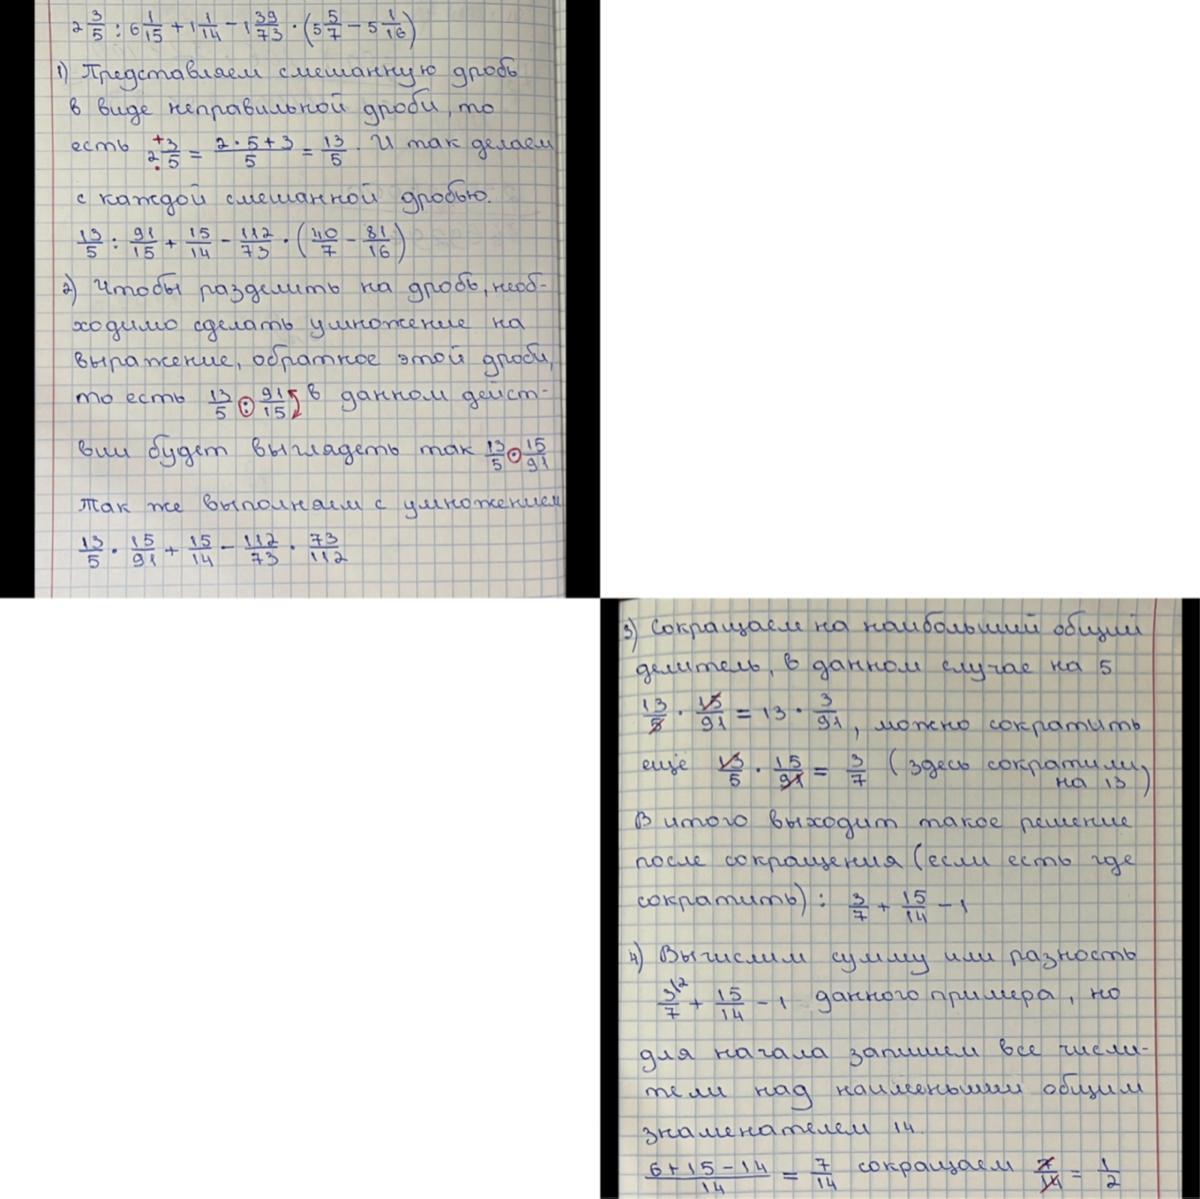 2 3/5 : 6 1/15 + 1 1/14 - 1 39/73 · (5 5/7 - 5 1/16)
1) Представляем смешанную дробь
в виде неправильной дроби, то
есть 2 3/5 = (2·5+3)/5 = 13/5. И так делаем
с каждой смешанной дробью.
13/5 : 91/15 + 15/14 - 112/73 · (40/7 - 81/16)
2) Чтобы разделить на дробь, необ-
ходимо сделать умножение на
выражение, обратное этой дроби,
то есть 13/5 : 91/15 в данном дейст-
вии будет выглядеть так 13/5 · 15/91
Так же выполняем с умножением
13/5 · 15/91 + 15/14 - 112/73 · 73/112
3) Сокращаем на наибольший общий
делитель, в данном случае на 5
13/5 · 15/91 = 13 · 3/91, можно сократить
ещё 13/5 · 15/91 = 3/7 (здесь сократили
на 13)
В итого выходит такое решение
после сокращения (если есть где
сократить): 3/7 + 15/14 - 1
4) Вычислим сумму или разность
3\2/7 + 15/14 - 1 данного примера, но
для начала запишем все числи-
тели над наименьшим общим
знаменателем 14.
(6+15-14)/14 = 7/14 сокращаем 7/14 = 1/2